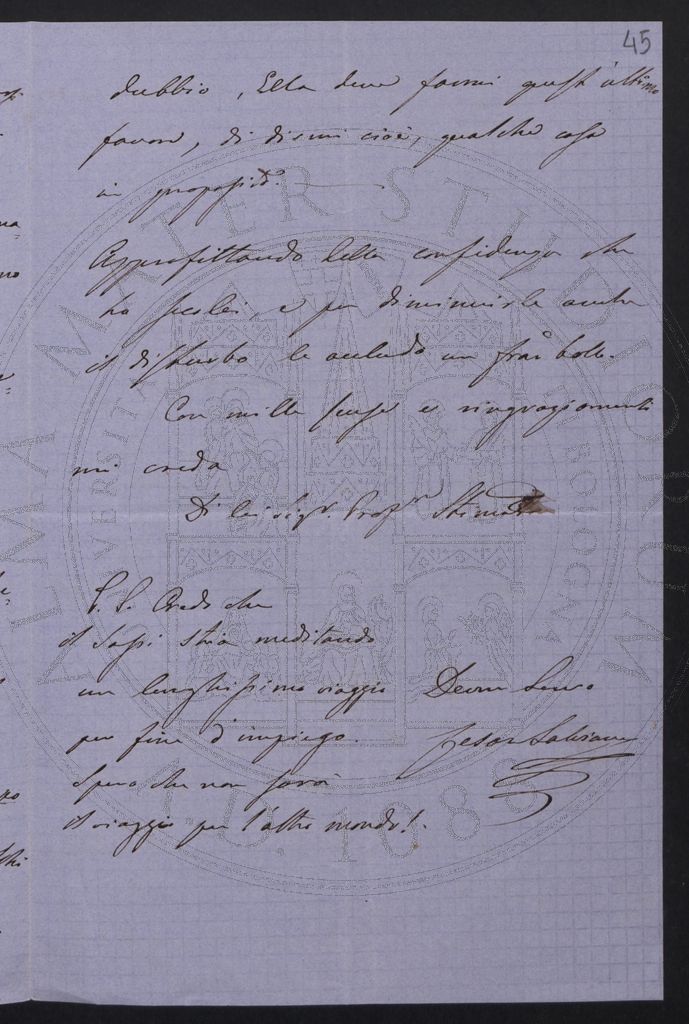 45
dubbio, Ella deve farmi quest'ultimo
favore, di dirmi cioè, qualche cosa
in proposito.
Approfittando della confidenza che
ho seco lei, e per diminuirle anche
il disturbo le accludo un franbollo.
Con mille scuse e ringraziamenti
mi creda
Di lei Sigr. Profre Stimatmo
P. S. Credo che
il Sassi stia meditando
un lunghissimo viaggio
per fine d'impiego.
Spero che non sarà
il viaggio per l'altro mondo!.
Devmo Servo
Cesar
ALMA MATER STUDIORUM
UNIVERSITÀ BOLOGNA
A.D. 1088